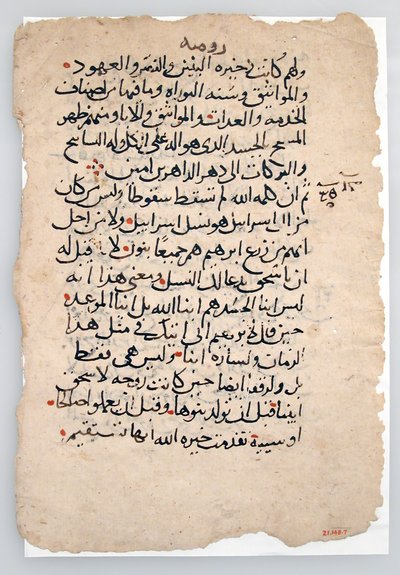 رومىه
ولهم كانت ذخيره البنين والنعمه والعهود
والمواثيق وسنه التوراه وما فيها من اصناف
الخدمه والعدات والمواثيق والابا ومنهم ظهر
المسيح بالجسد الذى هو اله على الكل وله التسابيح
والبركات الى دهر الداهرين امين
ثم ان كلمه الله لم تسقط سقوطا وليس كل من كان
من ال اسراييل هو نسل اسراييل ولا من اجل
انهم من زرع ابرهيم هم جميعا بنون لانه قيل له
ان اسحق يدعا لك النسل ومعنى هذا انه
ليس ابنا الجسد هم ابنا الله بل ابنا الموعد
حين قال انى
الزمان ولساره ابنا وليس هى فقط
بل ولرفقا ايضا حين كانت زوجه لاسحق
ابينا قبل ان يولد بنوها وقبل ان يعملوا صالحا
او سيه تقدمت خيره الله انها تستقيم
21.148.7